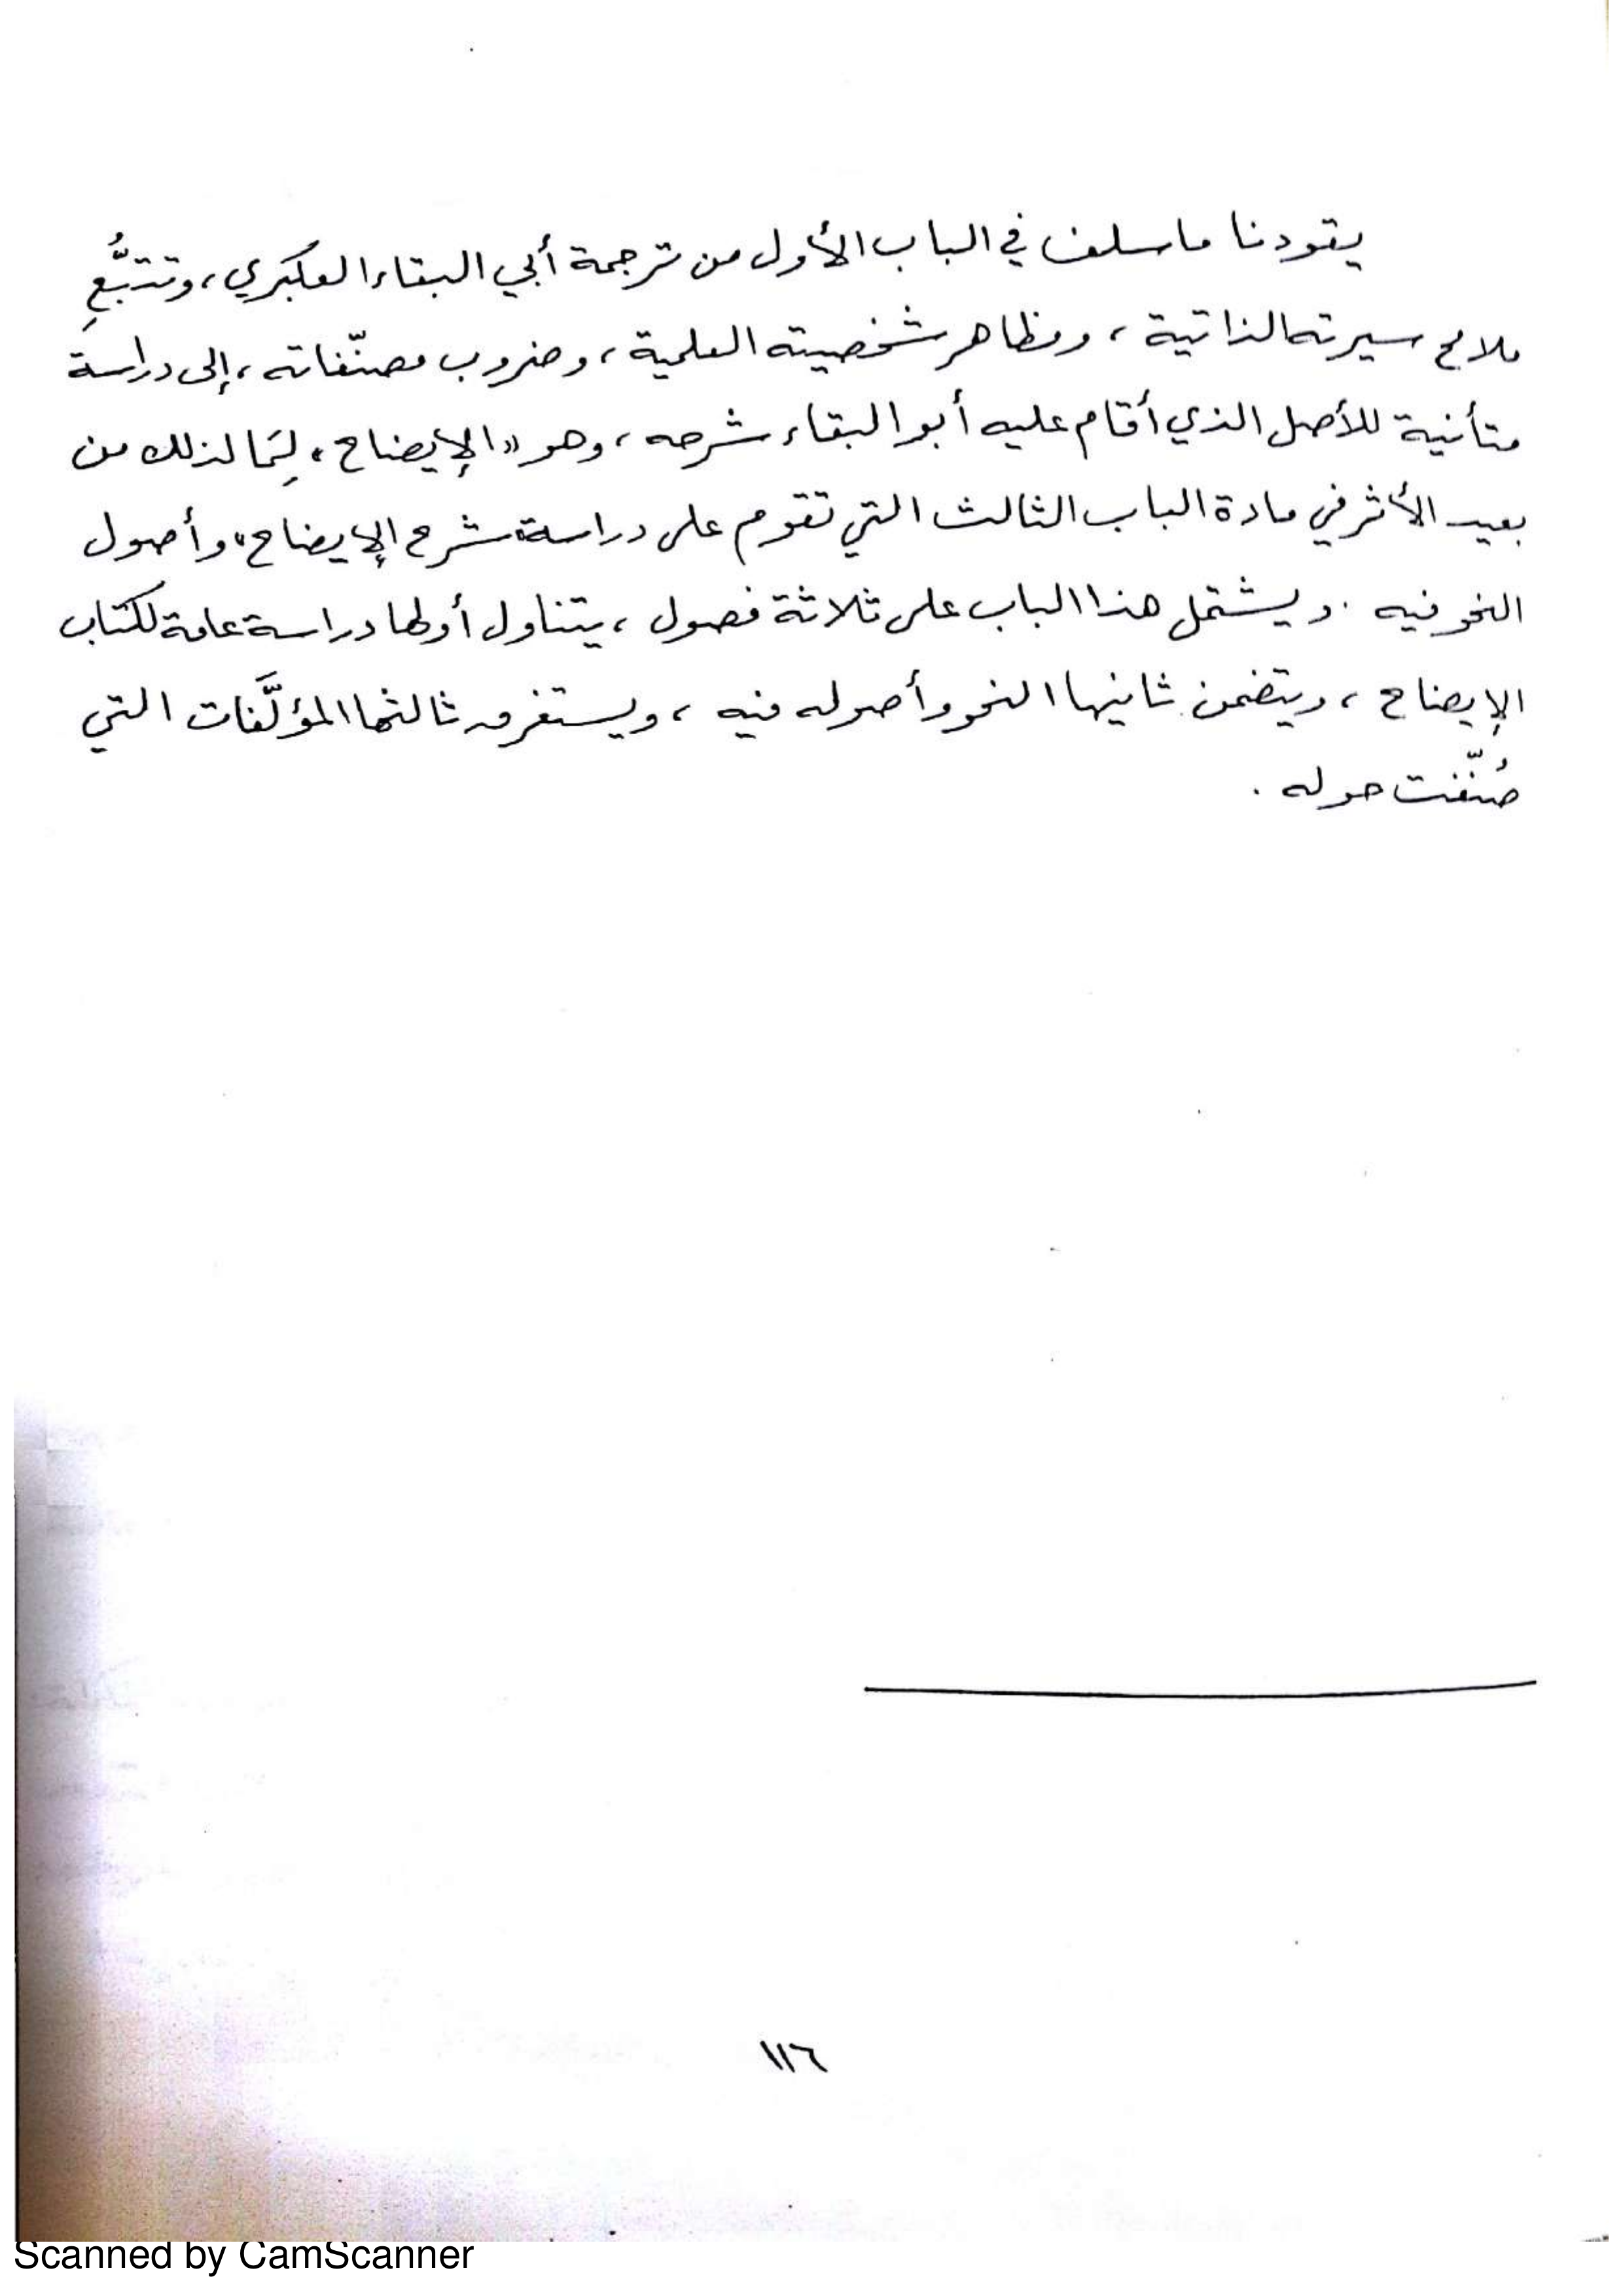 يقودنا ما سلف في الباب الأول من ترجمة أبي البقاء العكبري، وتتبُّعِ
ملامح سيرته الذاتية، ومظاهر شخصيته العلمية، وضروب مصنّفاته، إلى دراسة
متأنية للأصل الذي أقام عليه أبو البقاء شرحه، وهو «الإيضاح»، لِمَا لذلك من
بعيد الأثر في مادة الباب الثالث التي تقوم على دراسة «شرح الإيضاح» وأصول
النحو فيه. ويشتمل هذا الباب على ثلاثة فصول، يتناول أولها دراسة عامة لكتاب
الإيضاح، ويتضمن ثانيها النحو وأصوله فيه، ويستغرق ثالثها المؤلَّفات التي
صُنّفت حوله.
١١٦
Scanned by CamScanner